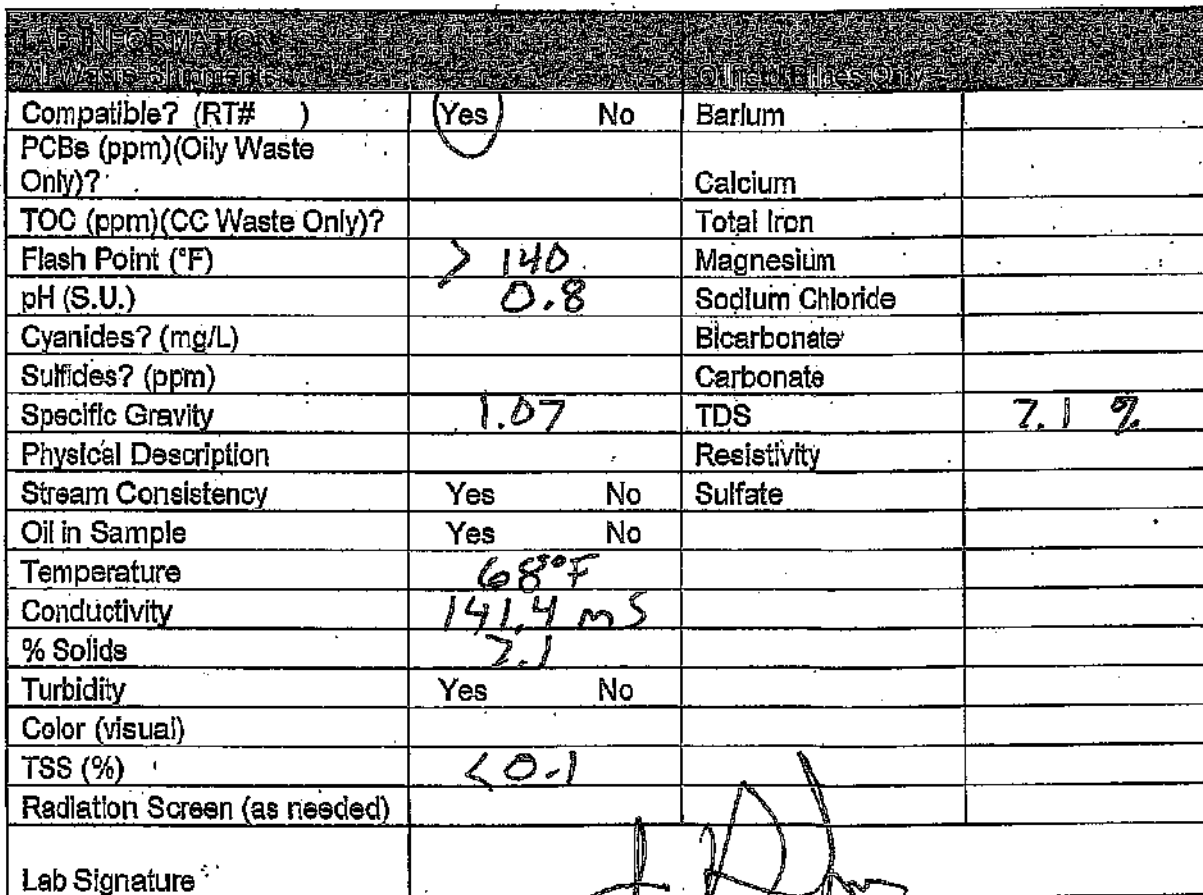 LAB INFORMATION
All Waste Shipments Other Brines Only
Compatible? (RT# ) Yes No Barium
PCBs (ppm)(Oily Waste
Only)? Calcium
TOC (ppm)(CC Waste Only)? Total Iron
Flash Point (°F) > 140 Magnesium
pH (S.U.) 0.8 Sodium Chloride
Cyanides? (mg/L) Bicarbonate
Sulfides? (ppm) Carbonate
Specific Gravity 1.07 TDS 7.1 %
Physical Description Resistivity
Stream Consistency Yes No Sulfate
Oil in Sample Yes No
Temperature 68°F
Conductivity 141.4 mS
% Solids 7.1
Turbidity Yes No
Color (visual)
TSS (%) <0.1
Radiation Screen (as needed)
Lab Signature